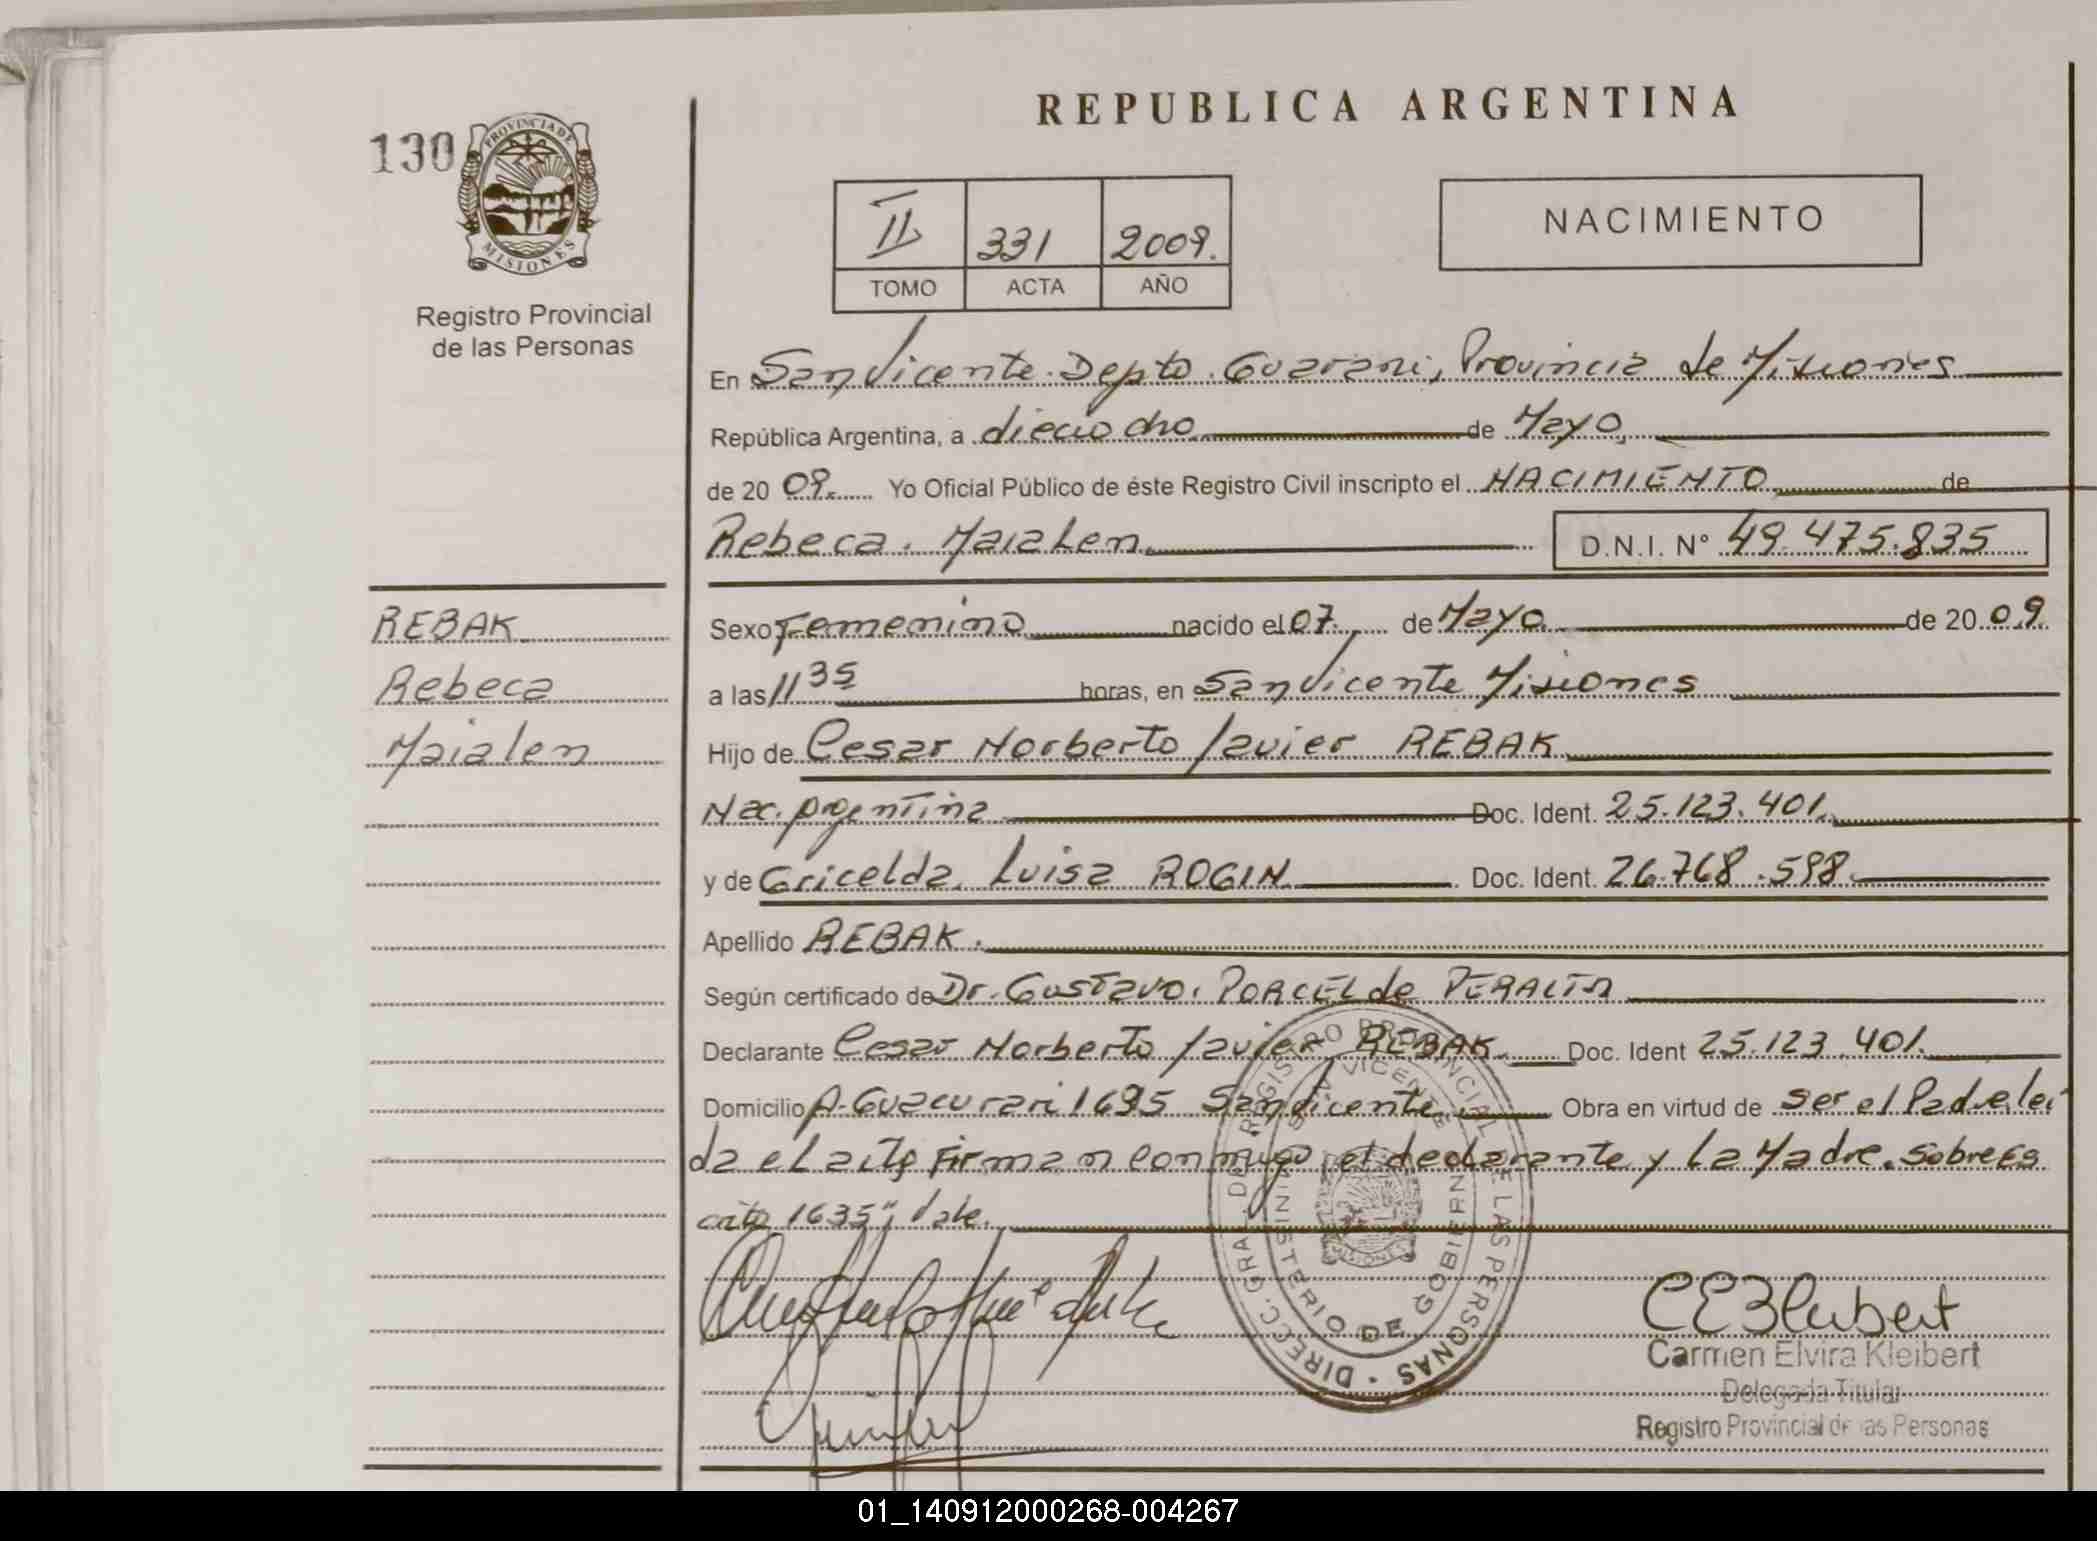 REPUBLICA ARGENTINA
130
PROVINCIA DE
MISIONES
Registro Provincial
de las Personas
II 331 2009.
TOMO ACTA AÑO
NACIMIENTO
En San Vicente. Depto. Guarani, Provincia de Misiones
República Argentina, a dieciocho de Mayo,
de 20 09. Yo Oficial Público de éste Registro Civil inscripto el NACIMIENTO de
Rebeca. Maialen D.N.I. N° 49.475.835
REBAK
Rebeca
Maialen
Sexo Femenino nacido el 07. de Mayo de 20 09
a las 11 35 horas, en San Vicente Misiones
Hijo de Cesar Norberto Javier REBAK
Nac. Argentina Doc. Ident. 25.123.401.
y de Gricelda Luisa ROGIN Doc. Ident. 26.768.598
Apellido REBAK.
Según certificado de Dr. Gustavo. PORCEL de PERALTA
Declarante Cesar Norberto Javier REBAK Doc. Ident 25.123.401.
Domicilio A. Guacurari 1695 San Vicente. Obra en virtud de ser el Padre, lei
da el acta Firman conmigo, el declarante y la Madre. Sobrees
crito 1635", Vale.
DIRECC. GRAL. DEL REGISTRO PROVINCIAL DE LAS PERSONAS
SAN VICENTE
MINISTERIO DE GOBIERNO
MISIONES
CEKleibert
Carmen Elvira Kleibert
Delegada Titular
Registro Provincial de las Personas
01_140912000268-004267